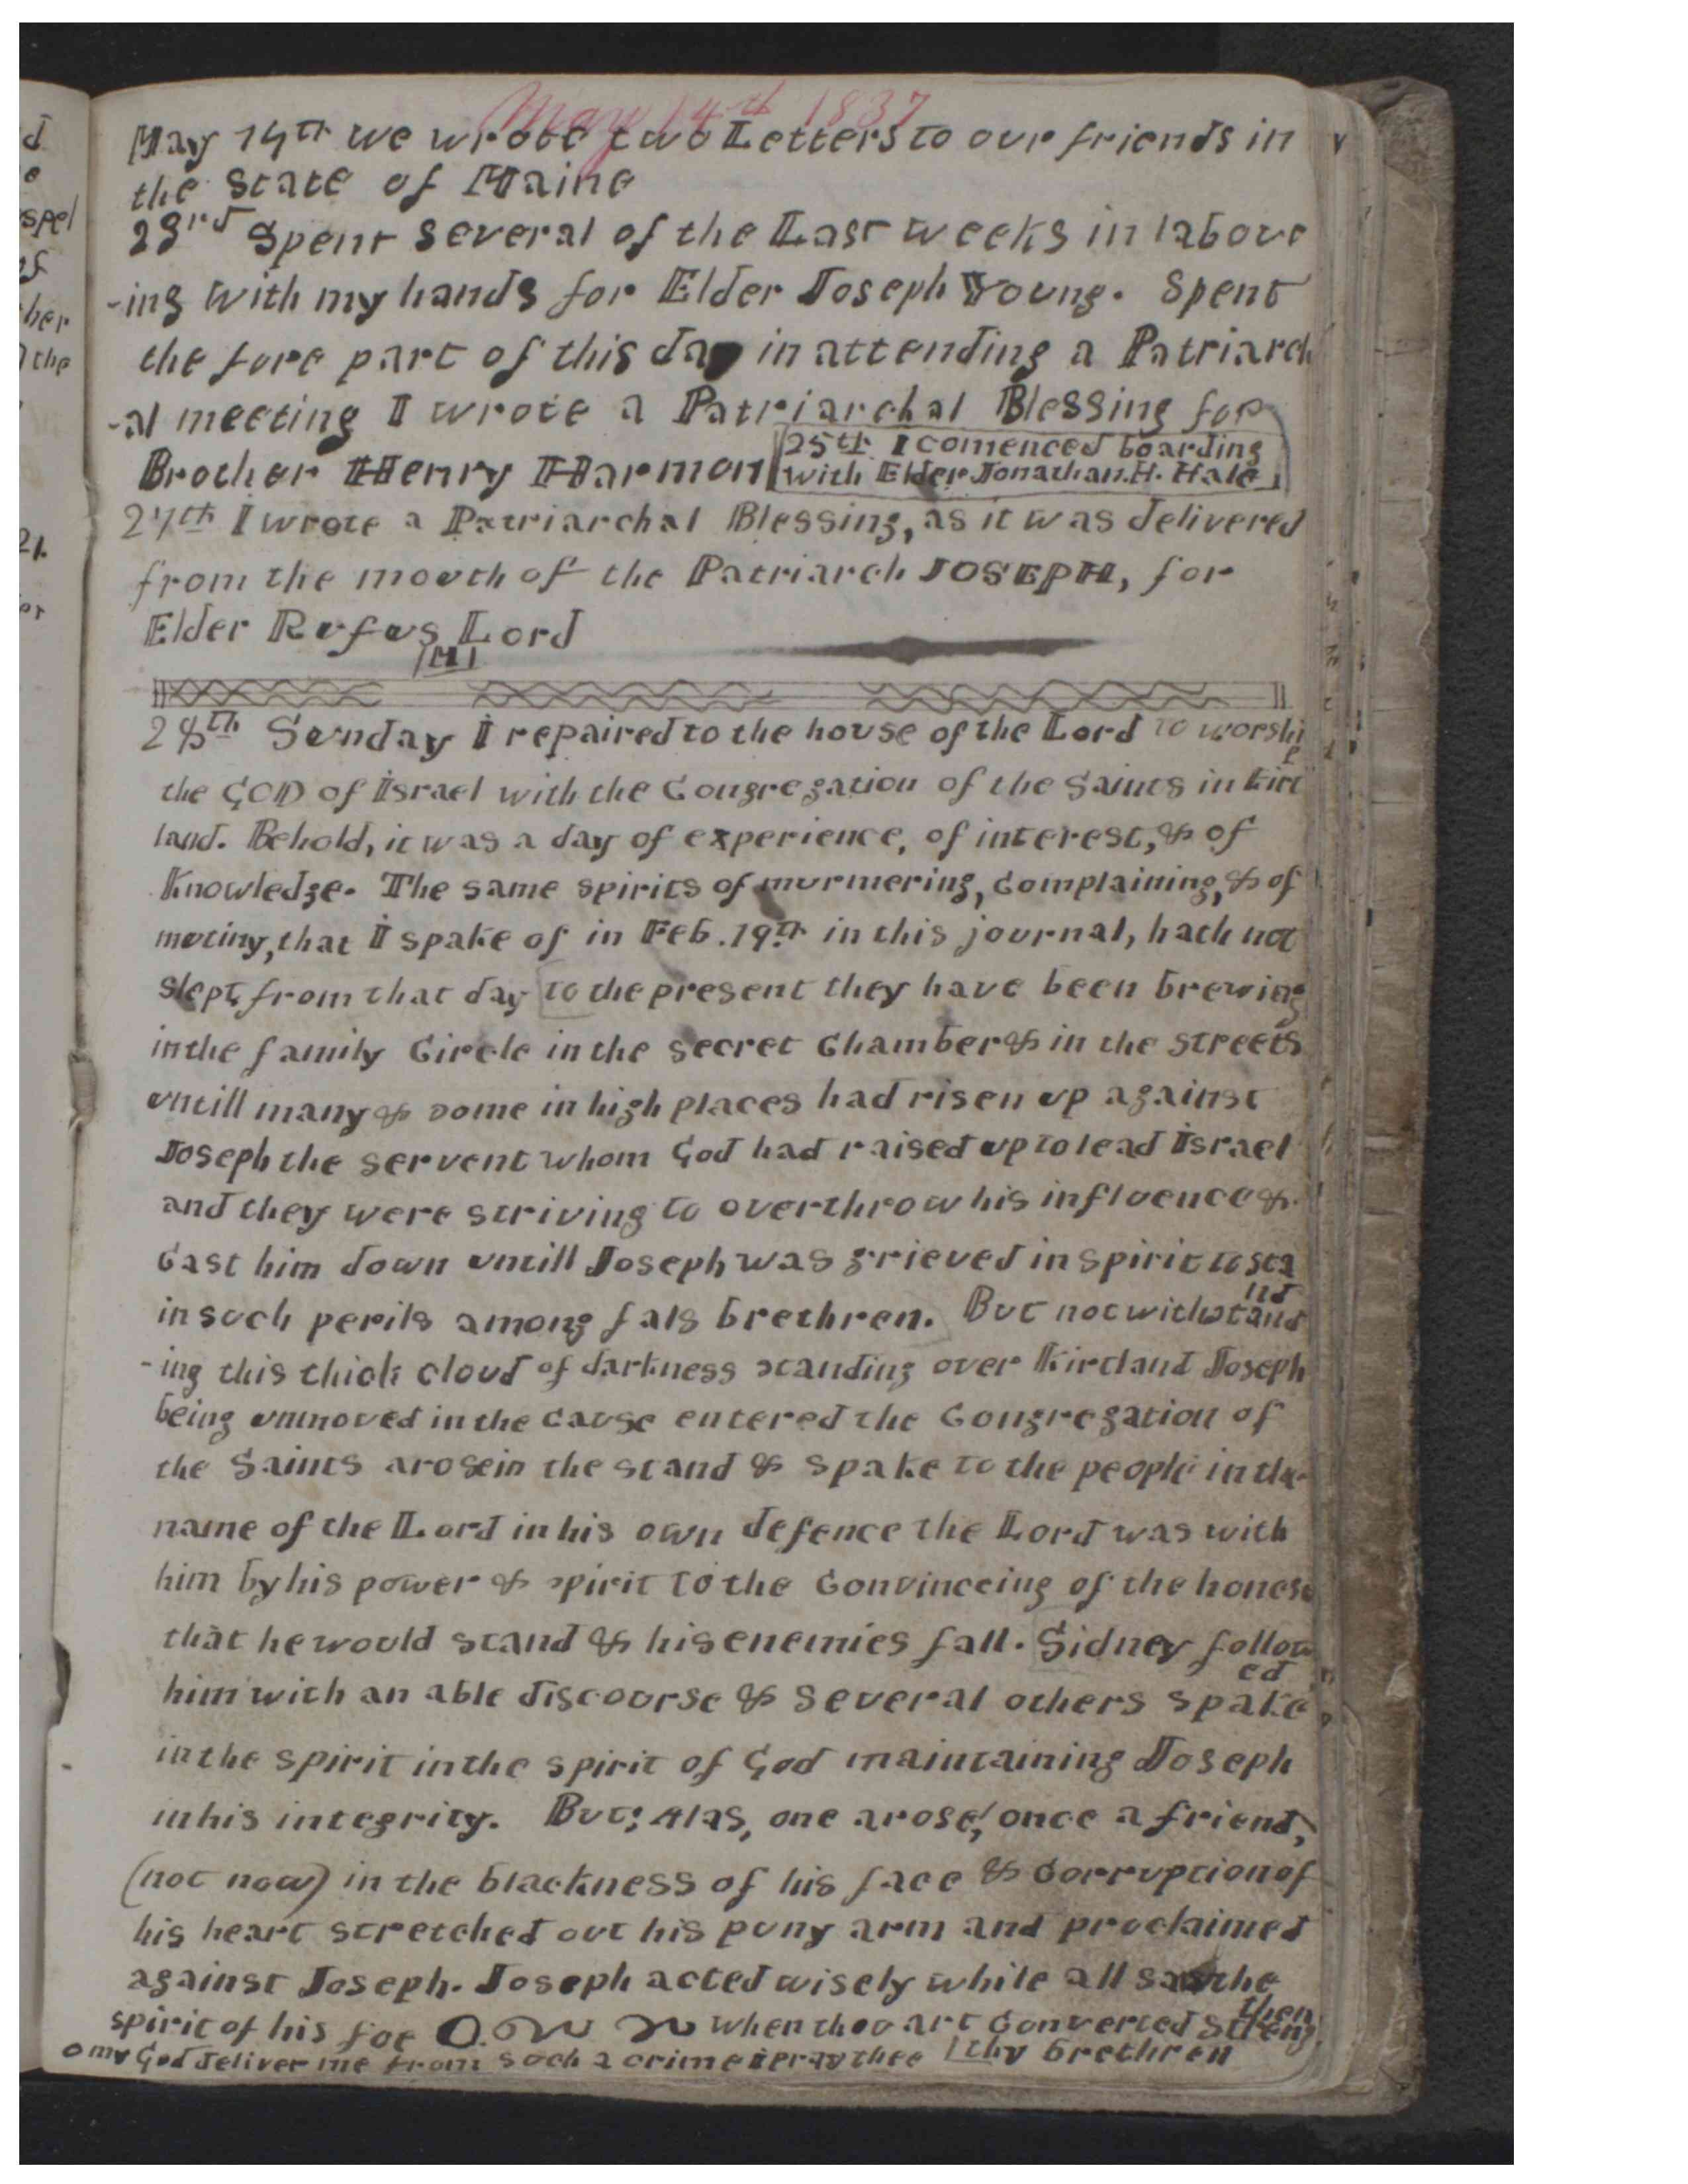 May 14th 1837
May 14th we wrote two Letters to our friends in
the State of Maine
23rd Spent several of the Last weeks in labour
-ing with my hands for Elder Joseph Young. Spent
the fore part of this day in attending a Patriarch
-al meeting I wrote a Patriarchal Blessing for
Brother Henry Harmon
25th I comenced boarding
with Elder Jonathan. H. Hale
27th I wrote a Patriarchal Blessing, as it was delivered
from the mouth of the Patriarch JOSEPH, for
Elder Rufus Lord
28th Sunday I repaired to the house of the Lord to worshi
p
the GOD of Israel with the Congregation of the Saints in Kirt
land. Behold, it was a day of experience, of interest, & of
Knowledge. The same spirits of murmering, Complaining, & of
mutiny, that I spake of in Feb. 19th in this journal, hath not
slept, from that day to the present they have been brewing
in the family Circle in the secret Chamber & in the streets
untill many & some in high places had risen up against
Joseph the servent whom God had raised up to lead Israel
and they were striving to overthrow his influence &
Cast him down untill Joseph was grieved in spirit to sta
nd
in such perils among fals brethren. But notwithstand
-ing this thick cloud of darkness standing over Kirtland Joseph
being unmoved in the cause entered the Congregation of
the Saints arose in the stand & spake to the people in the
name of the Lord in his own defence the Lord was with
him by his power & spirit to the Convinceing of the honest
that he would stand & his enemies fall. Sidney follow
ed
him with an able discourse & several others spake
in the spirit in the spirit of God maintaining Joseph
in his integrity. But; Alas, one arose, once a friend,
(not now) in the blackness of his face & Corruption of
his heart stretched out his puny arm and proclaimed
against Joseph. Joseph acted wisely while all saw the
spirit of his foe O. when thou art Converted streng
then
thy brethren
O my God deliver me from such a crime I pray thee